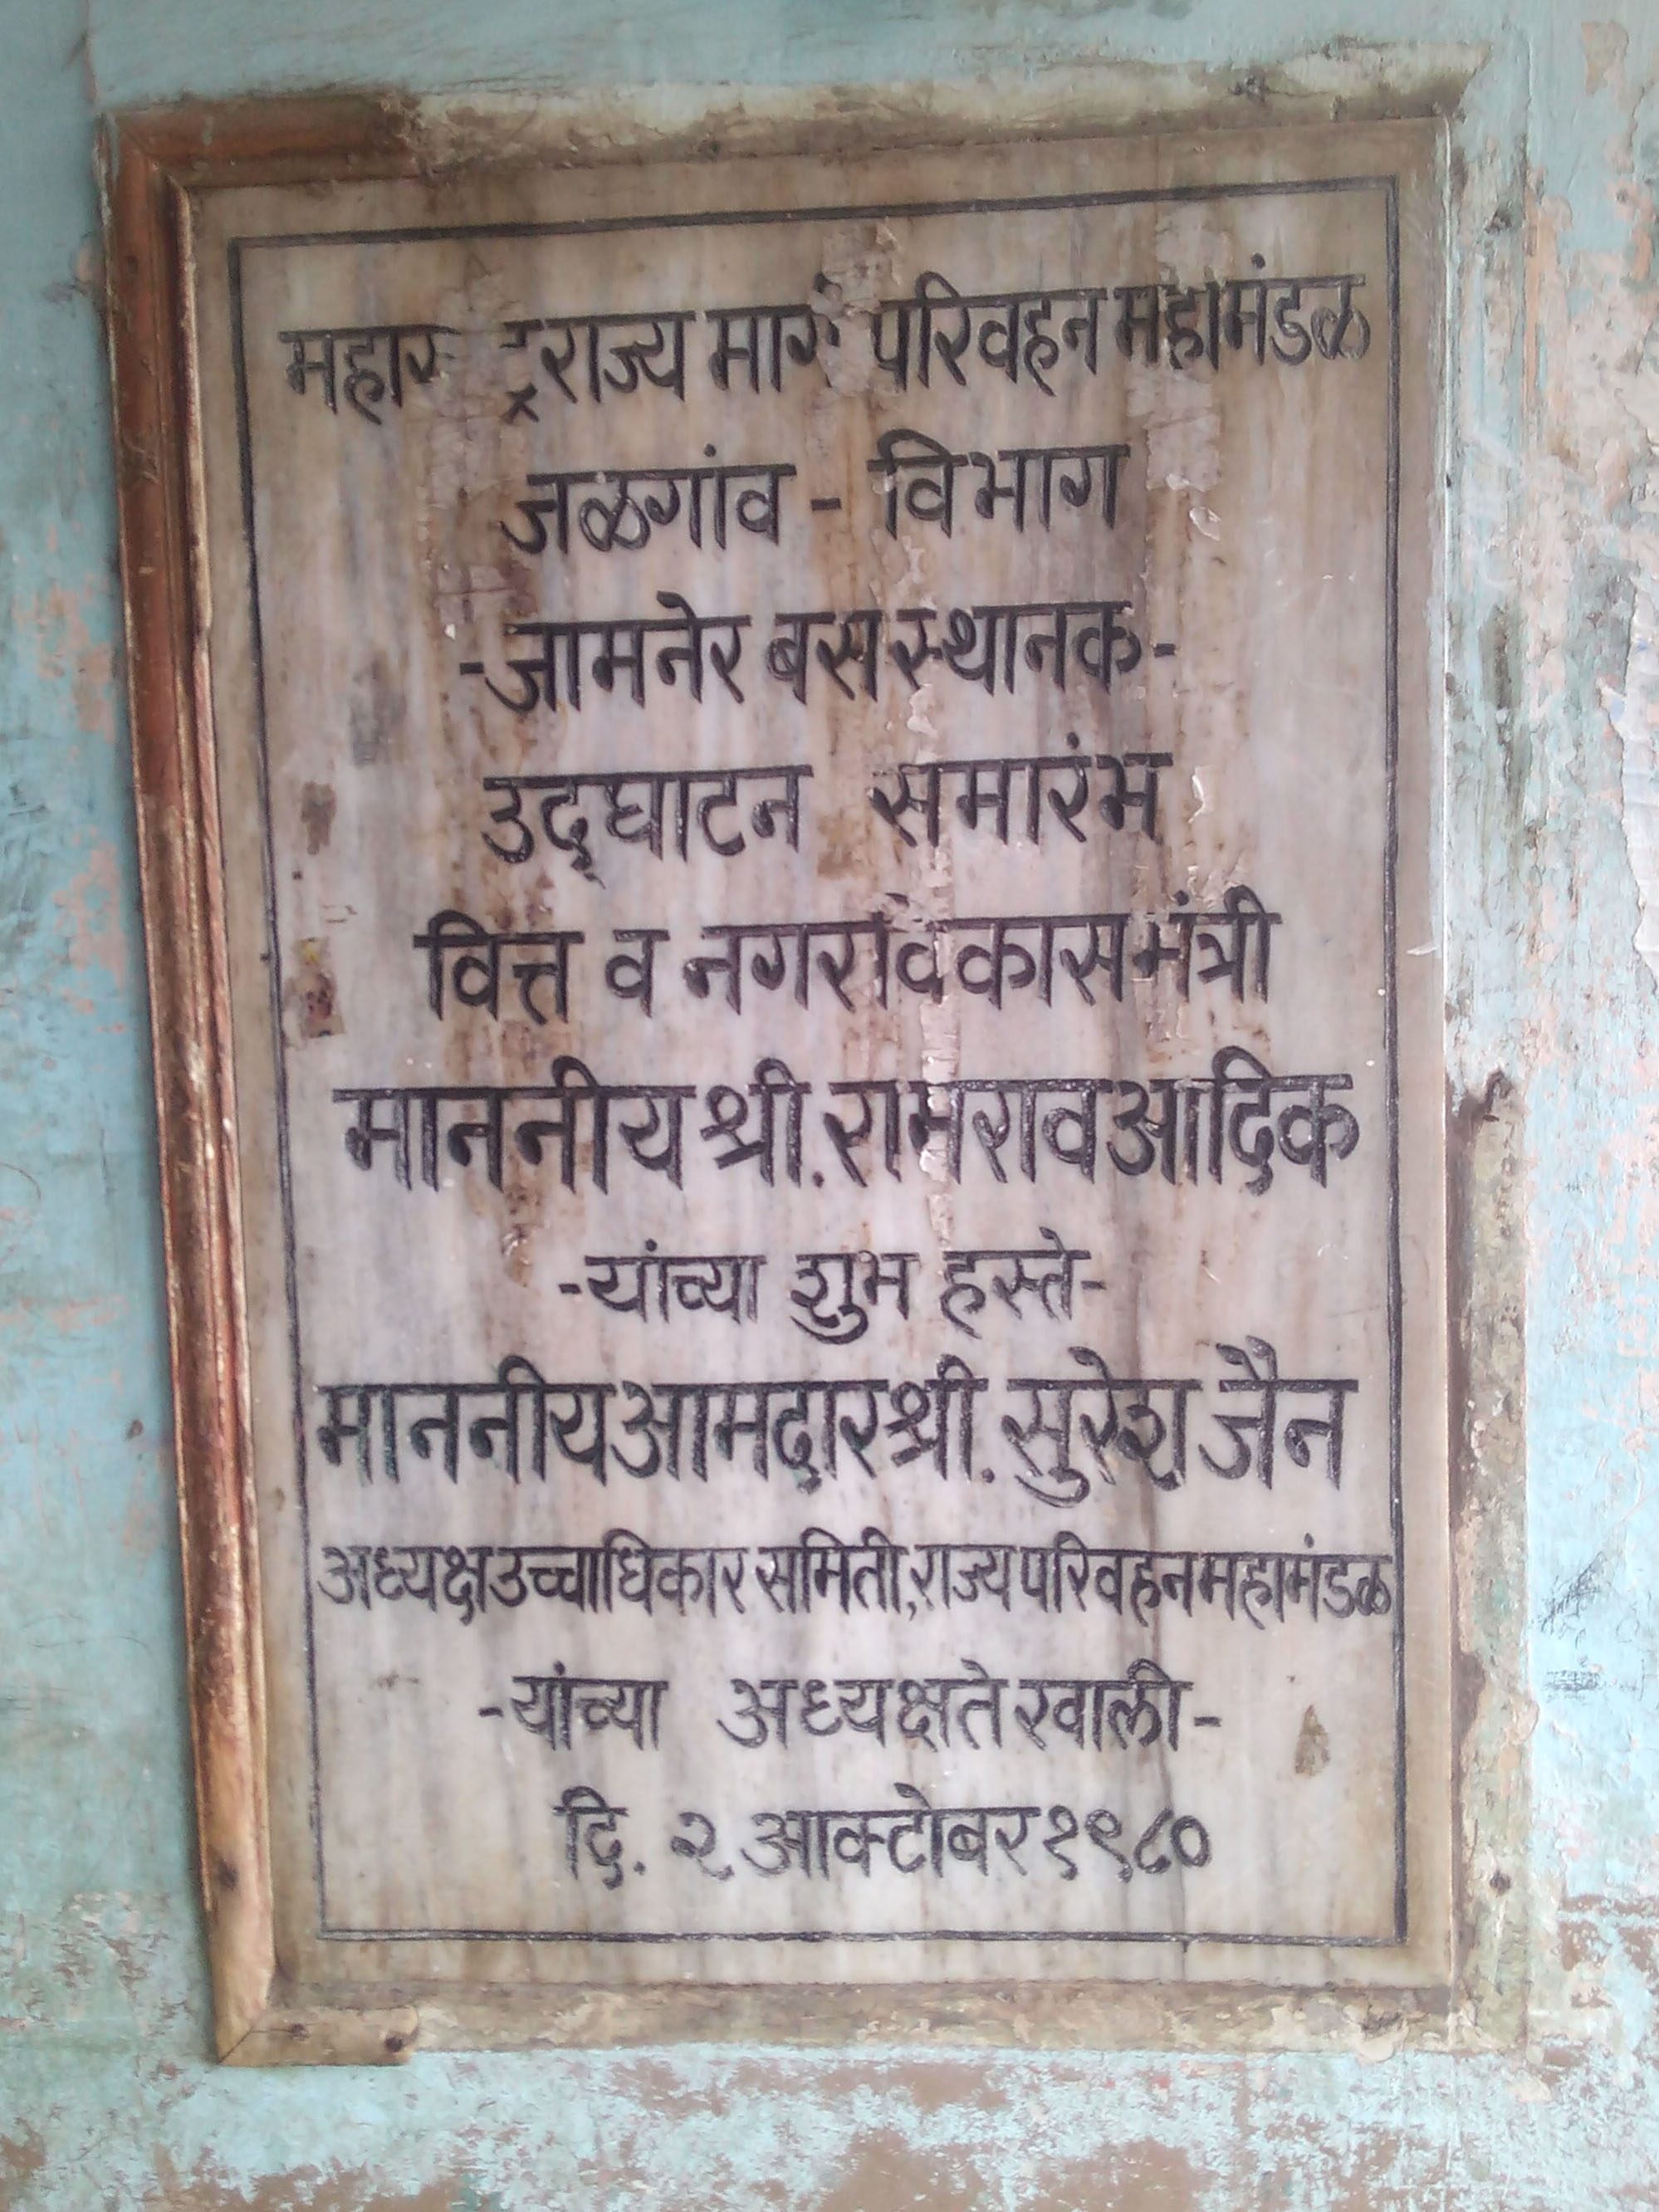 महाराष्ट्र राज्य मार्ग परिवहन महामंडळ
जळगांव - विभाग
-जामनेर बस स्थानक-
उद्‌घाटन समारंभ
वित्त व नगरविकास मंत्री
माननीय श्री. रामराव आदिक
-यांच्या शुभ हस्ते-
माननीय आमदार श्री. सुरेश जैन
अध्यक्ष उच्चाधिकार समिती, राज्य परिवहन महामंडळ
-यांच्या अध्यक्षतेखाली-
दि. २ आक्टोबर १९८०